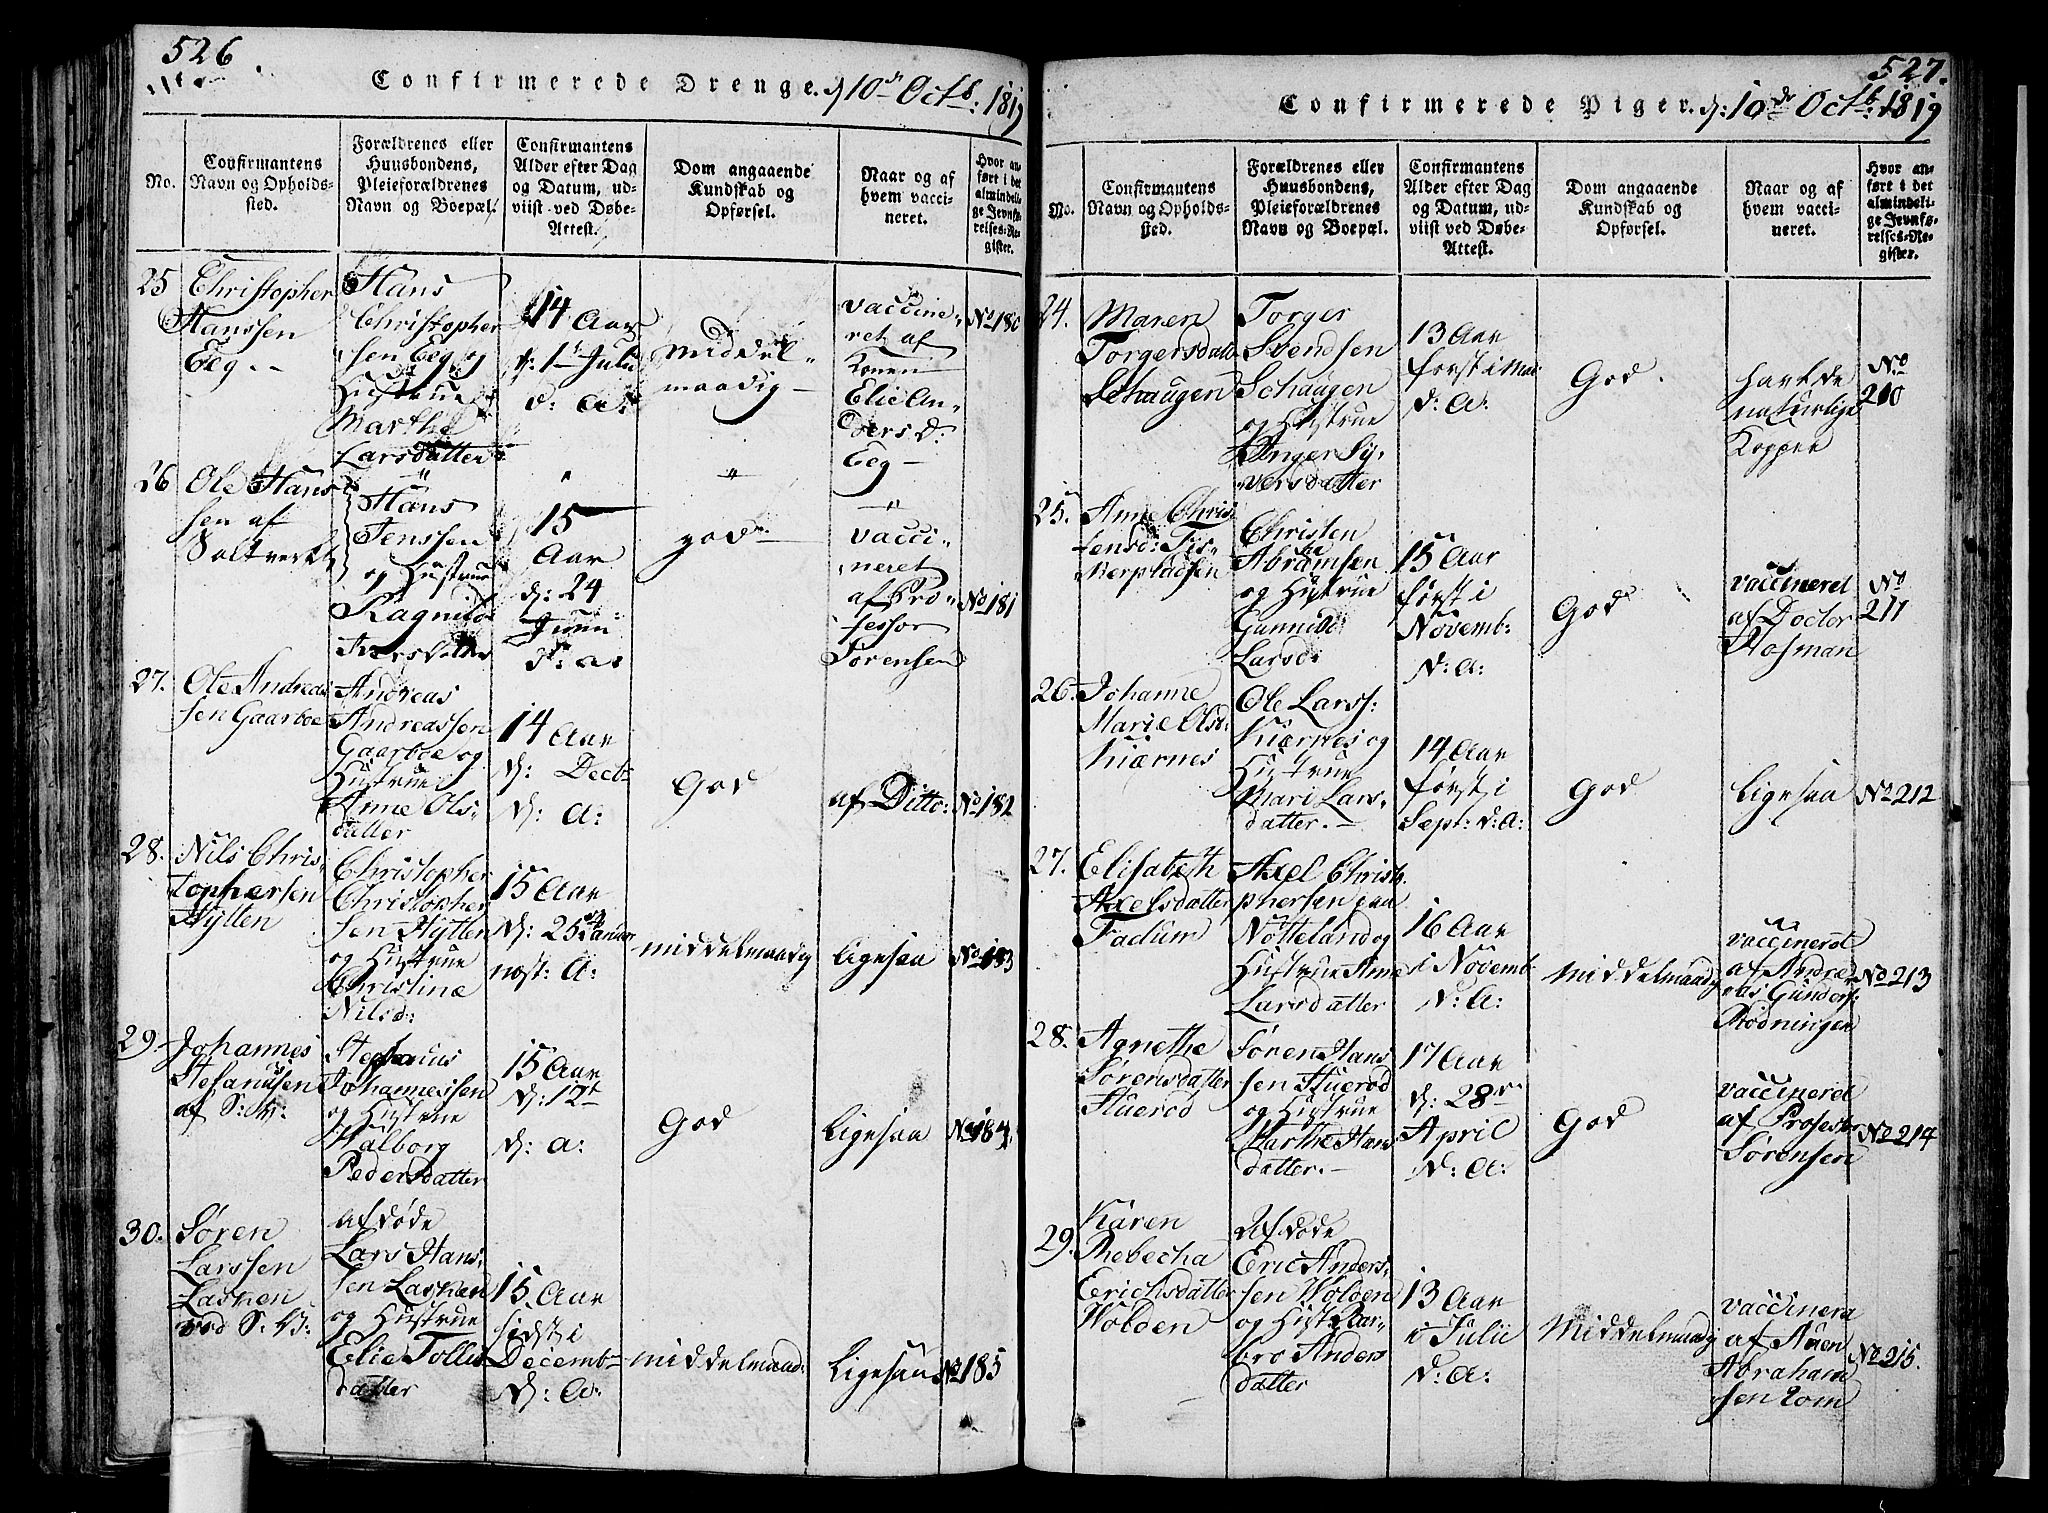 526
Confirmerede Drenge. d 10de Octb: 1819
No.
Confirmantens
Navn og Opholds-
sted.
Forældrenes eller
Huusbondens,
Pleieforældrenes
Navn og Boepæl.
Confirmantens
Alder efter Dag
og Datum, ud-
viist ved Døbe-
Attest.
Dom angaaende
Kundskab og
Opførsel.
Naar og af
hvem vacci-
neret.
Hvor an-
ført i det
almindeli-
ge Jevnfø-
relses-Re-
gister.
25
Christopher
Hanssen
Eeg --
Hans
Christopher
sen Eeg og
Hustrue
Marthe
Larsdatter
14 Aar
d: 1te Julii
d: a:
middel-
maadig
vaccine-
ret af
Konen
Elie An-
ders d:
Eeg
No 180
26
Ole Hans
sen af
Saltverket
Hans
Jenssen
og Hustrue
Ragnild
Iversdatter
15
Aar
d: 24
Juni
d: a:
god
vacci-
neret
af Pro-
fessor
Sørensen
No 181
27.
Ole Andreas
sen Gaarboe
Andreas
Andreassen
Gaarboe og
Hustrue
Anne Ols-
datter
14 Aar
d: Decb
d: A:
God
af Ditto:
No 182
28.
Nils Chris-
tophersen
Hytten
Christopher
Christopher
sen Hytten
og Hustrue
Christine
Nilsd:
15 Aar
d: 25 Januar
næst: A:
middelmaadig
ligesaa
No 183
29.
Johannes
Stefanusen
af S: V:
Stephanus
Johannessen
og Hustrue
Valborg
Pedersdatter
15 Aar
d: 12t
d: a:
God
ligesaa
No 184
30.
Søren
Larssen
Lasken
ved S: V:
Afdøde
Lars Hans-
sen Lasken
og Hustrue
Elie Tolles
datter
15 Aar
sidst i
Decemb
d: A:
middelmaad:
ligesaa
No 185
527.
Confirmerede Piger. d: 10de Octb: 1819
No.
Confirmantens
Navn og Opholds-
sted.
Forældrenes eller
Huusbondens,
Pleieforældrenes
Navn og Boepæl.
Confirmantens
Alder efter Dag
og Datum, ud-
viist ved Døbe-
Attest.
Dom angaaende
Kundskab og
Opførsel.
Naar og af
hvem vacci-
neret.
Hvor an-
ført i det
almindeli-
ge Jevnfø-
relses-Re-
gister.
24.
Maren
Torgersdatt
Schaugen
Torger
Svendsen
Schaugen
og Hustrue
Inger Sy-
versdatter
13 Aar
først i Mai
d: A:
God.
havt de
naturlige
Kopper
No
210
25.
Anne Chris
tensd:
Christen
Abramsen
og Hustrue
Gunnild
Larsd:
15 Aar
først i
Novemb:
d: A:
God
vaccineret
af Doctor
Hofman
No
211
26.
Johanne
Marie Olsd:
Kiærnes
Ole Larss:
Kiærnes og
Hustrue
Mari Lars-
datter.
14 Aar
først i
Sept: d: A:
God
ligesaa
No 212
27.
Elisabeth
Axelsdatter
Fadum
Axel Christo
phersen paa
Nøtteland og
Hustrue Anne
Larsdatter
16 Aar
i Novemb
d: A:
middelmaadig
vaccineret
af Andre
as Gunders:
Rødningen
No 213
28.
Agnethe
Sørensdatter
Huerød
Søren Hans
sen Huerød
og Hustrue
Marthe Hans
datter.
17 Aar
d: 28de
April
d: A:
God
vaccineret
af Professor
Sørensen
No 214
29.
Karen
Rebecha
Erichsdatter
Wolden
Afdøde
Eric Anders-
sen Wolden
og Hust: Bar-
bro Anders
datter
13 Aar
i Julii
d: A:
middelmaadig
vaccinera
af Auen
Abraham
sen Rom
No 215.